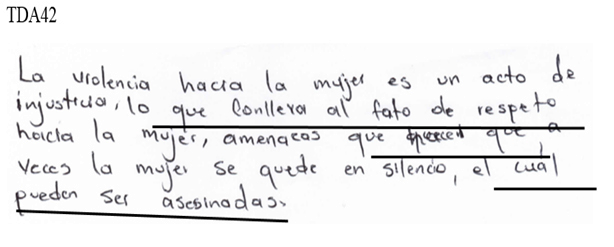 TDA42
La violencia hacia la mujer es un acto de
injusticia, lo que Conlleva al fato de respeto
hacia la mujer, amenazas que que, a
veces la mujer se quede en silencio, el cual
pueden ser asesinadas.